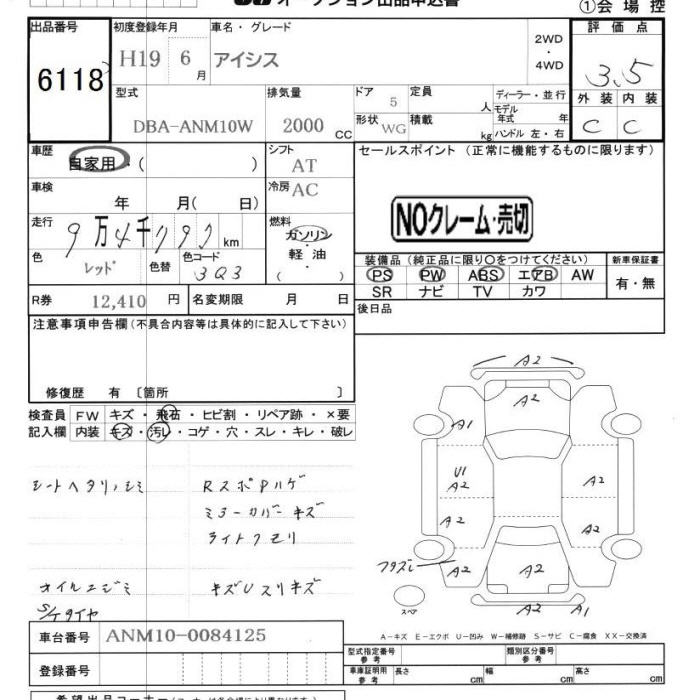 オークション出品申込書
①会場控
出品番号 初度登録年月 車名・グレード 評価点
6118 H19 6月 アイシス 2WD・4WD 3.5
型式 排気量 ドア 5 定員 人 ディーラー・並行 外装 内装
DBA-ANM10W 2000 CC 形状 WG 積載 kg モデル年式 年 ハンドル 左・右 C C
車歴 自家用・( ) シフト AT セールスポイント (正常に機能するものに限ります)
車検 年 月( 日) 冷房 AC
NOクレーム・売切
走行 9万4千797km 燃料 ガソリン・軽油( )
色 レッド 色替 色コード 3Q3
装備品 (純正品に限り○をつけてください) 新車保証書
PS PW ABS エアB AW 有・無
SR ナビ TV カワ
R券 12,410 円 名変期限 月 日
後日品
注意事項申告欄 (不具合内容等は具体的に記入して下さい)
修復歴 有 〔箇所 〕
検査員 FW キズ・飛石・ヒビ割・リペア跡・×要
記入欄 内装 キズ・汚レ・コゲ・穴・スレ・キレ・破レ
シートヘタリ、シミ RスポPハゲ
ミラーカバーキズ
ライトクモリ
オイルニジミ キズUスリキズ
S/ケタイヤ
A2
A2
A1
U1
A2 A2
A2 A2
フタズレ A2 A2 A2
スペア A2 A1
A-キズ E-エクボ U-凹み W-補修跡 S-サビ C-腐食 XX-交換済
車台番号 ANM10-0084125
登録番号
型式指定番号 参考 類別区分番号 参考
車庫証明用 参考 長さ cm 幅 cm 高さ cm